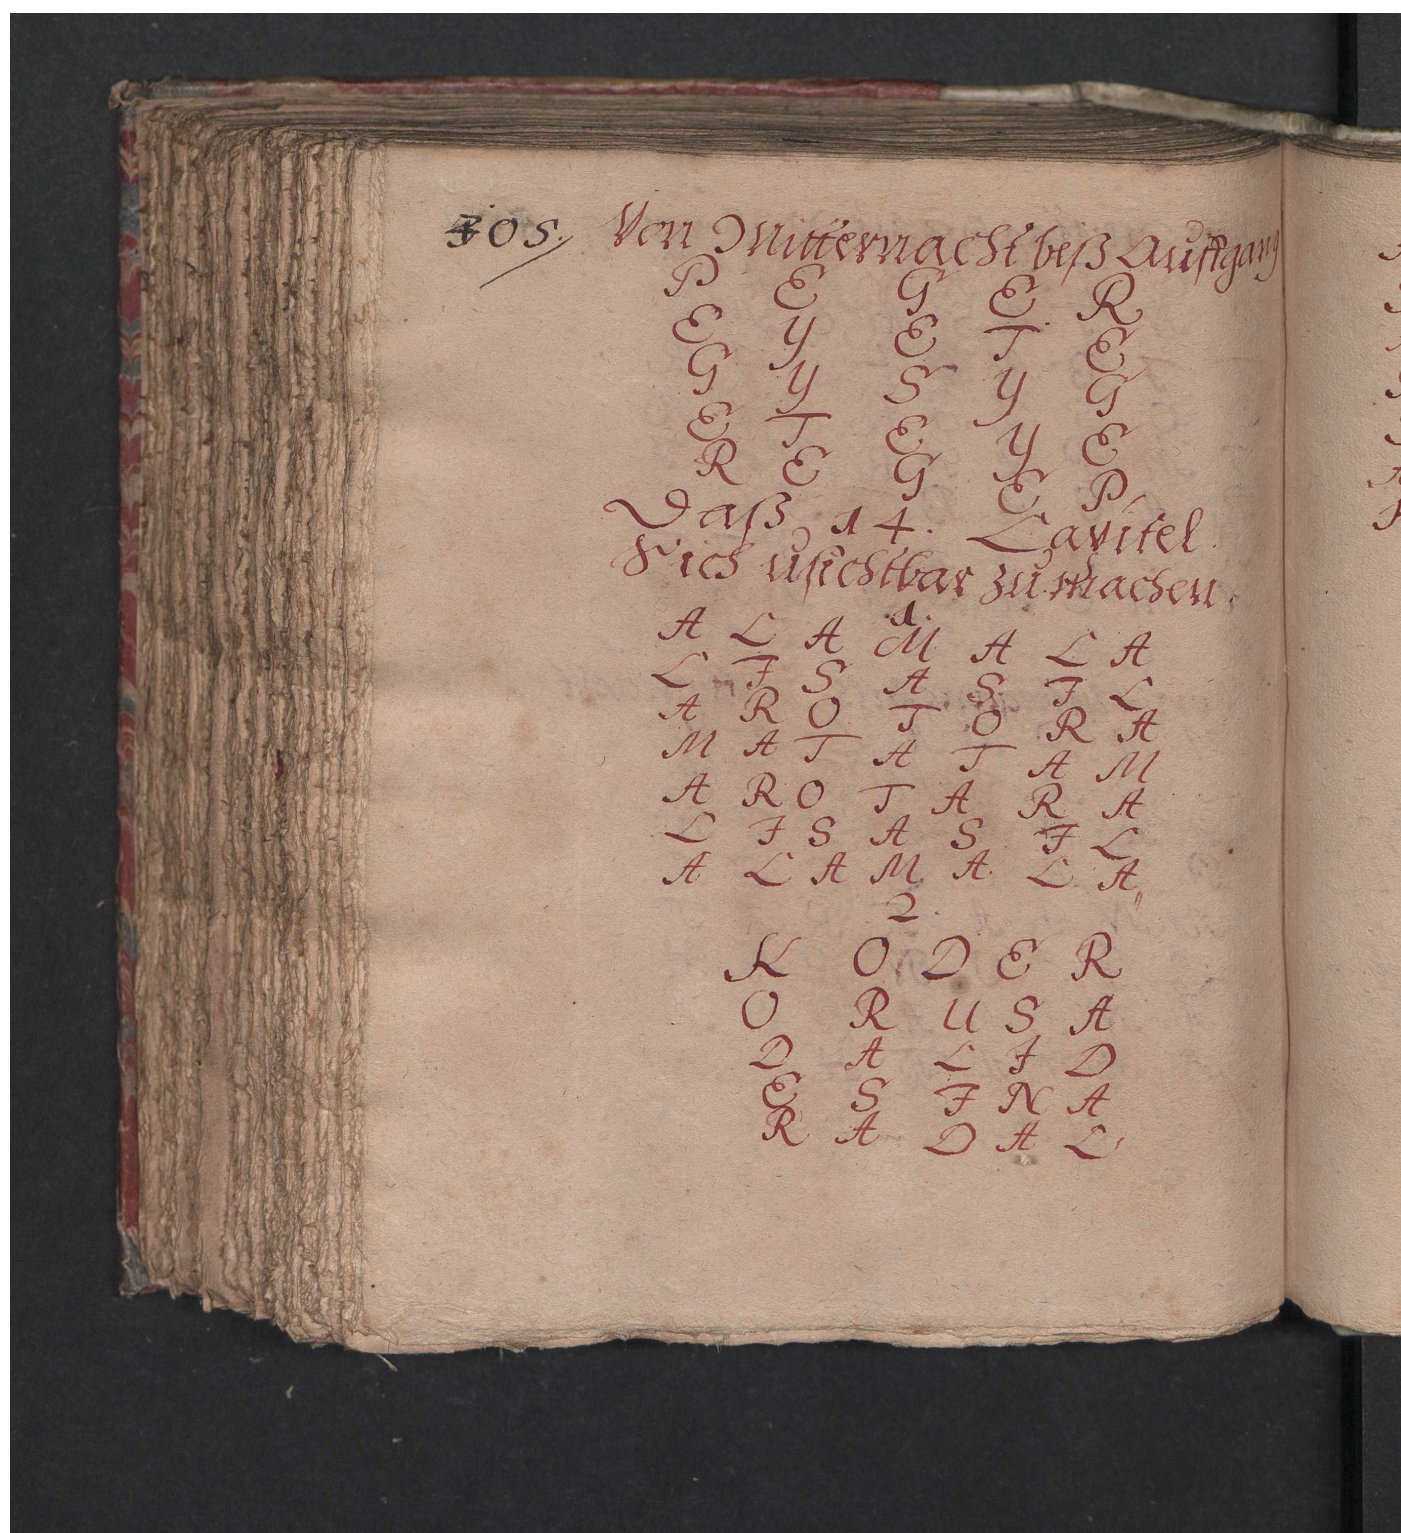 305.
Von Mitternacht beß Auffgang
P E G E R
E Y E T E
G Y S Y G
E T E Y E
R E G E P
Daß 14. Capitel
Sich usichtbar zu machen
1.
A L A M A L A
L I S A S I L
A R O T O R A
M A T A T A M
A R O T A R A
L I S A S I L
A L A M A L A
2.
K O D E R
O R U S A
D A L I D
E S I N A
R A D A L